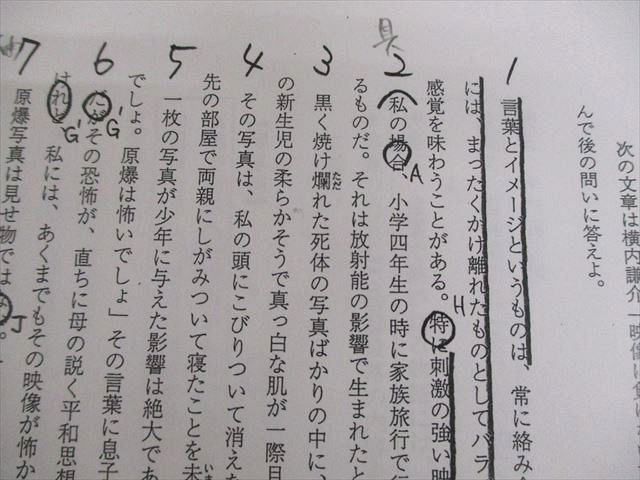 次の文章は横内謙介「映像
んで後の問いに答えよ。
1
言葉とイメージというものは、常に絡み
には、まったくかけ離れたものとしてバラ
感覚を味わうことがある。特に刺激の強い映
H
具
2
私の場合、小学四年生の時に家族旅行で
A
るものだ。それは放射能の影響で生まれたと
3
黒く焼け爛れた死体の写真ばかりの中に、
ただ
の新生児の柔らかそうで真っ白な肌が一際目
4
その写真は、私の頭にこびりついて消えた
先の部屋で両親にしがみついて寝たことを未
いま
5
一枚の写真が少年に与えた影響は絶大であ
でしょ。原爆は怖いでしょ」その言葉に息子
6
だがその恐怖が、直ちに母の説く平和思想
G'
けれど、私には、あくまでもその映像が怖か
G'
7
原爆写真は見せ物では
J